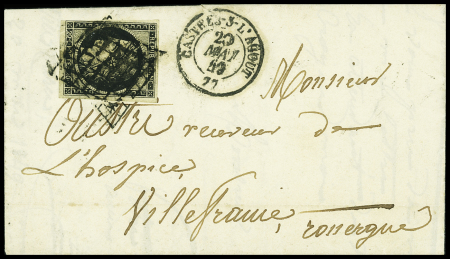 CASTRES-S-L'AGOUT
23
MAI
49
77
Monsieur
receveur de
L'hospice,
Villefranche,
rouergue